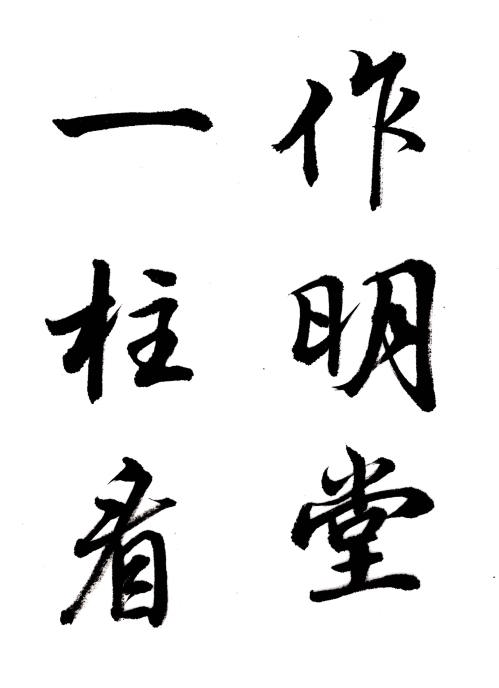 作明堂
一柱看